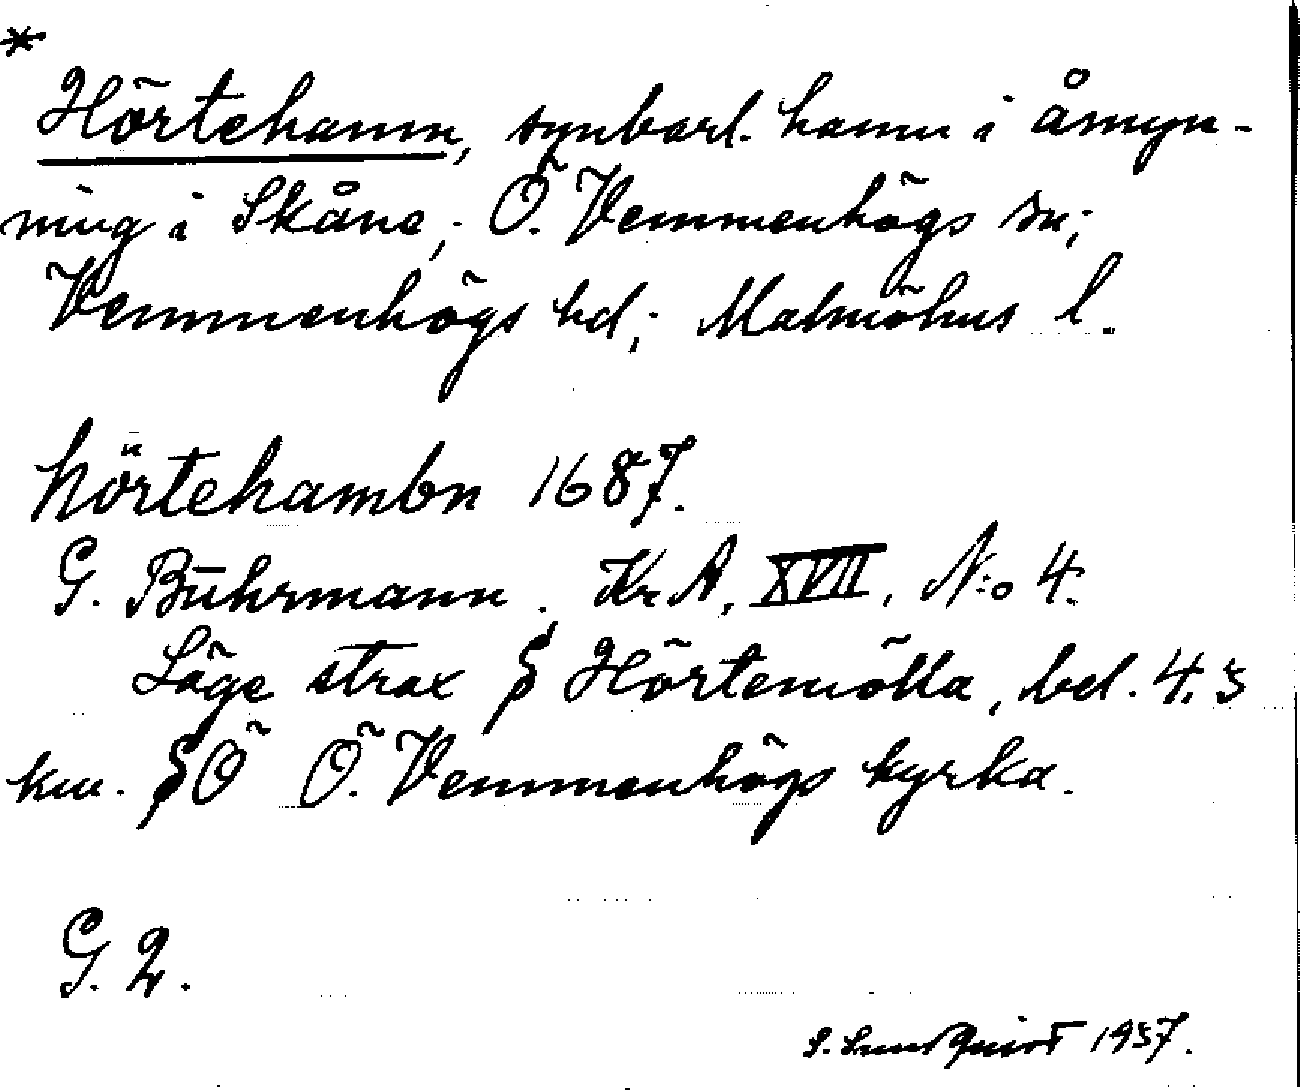 *
Hörtehamn, synbarl. hamn i åmyn-
ning i Skåne; Ö. Vemmenhögs sn;
Vemmenhögs hd; Malmöhus l.
hörtehambn 1687.
G. Buhrmann, Kr A, XVII, N:o 4.
Läge strax S Hörtemölla, bel. 4.3
km. SÖ Ö. Vemmenhögs kyrka.
G. 2.
S. Lundquist 1937.